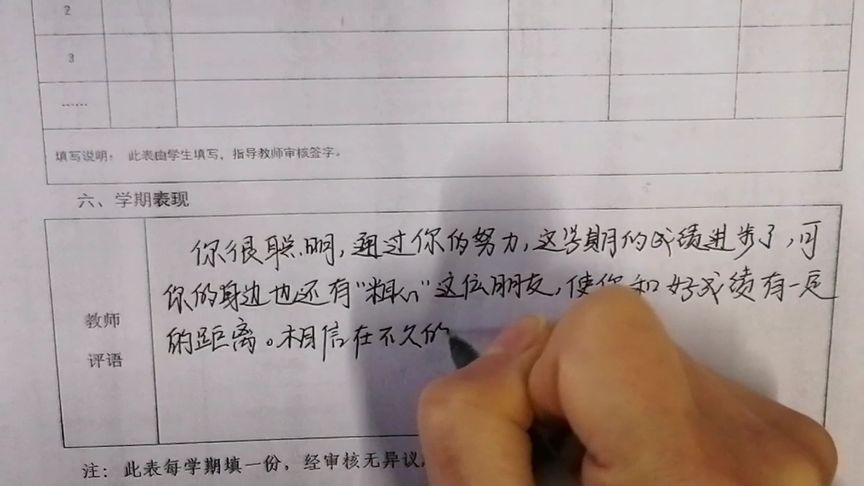 2
3
……
填写说明： 此表由学生填写，指导教师审核签字。
六、学期表现
你很聪明，通过你的努力，这学期的成绩进步了，可
你的身边也还有“粗心”这位朋友，使你和好成绩有一定
的距离。相信在不久的
教师
评语
注： 此表每学期填一份，经审核无异议，